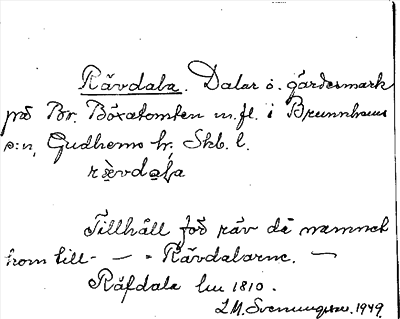 Rävdala. Dalar o. gärdesmark
på Br. Böxatomten m.fl. i Brunnhems
s:n, Gudhems hr, Skb. l.
rävdala
Tillhåll för räv då namnet
kom till - — - Rävdalarne. —
Räfdala lm 1810.
L.M. Svenungsson. 1949.